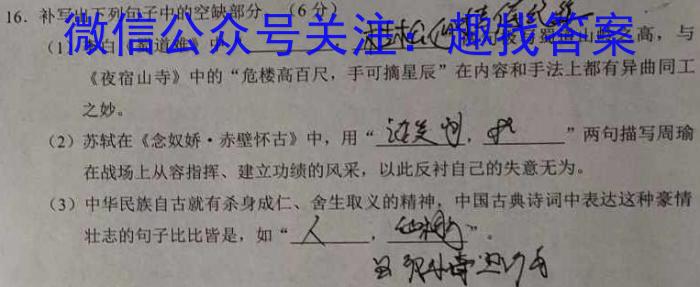 16. 补写出下列句子中的空缺部分。(6分)
微信公众号关注:趣找答案
(1) 李白《蜀道难》中 高,与
《夜宿山寺》中的“危楼高百尺,手可摘星辰”在内容和手法上都有异曲同工
之妙。
(2) 苏轼在《念奴娇·赤壁怀古》中,用“ , ”两句描写周瑜
在战场上从容指挥、建立功绩的风采,以此反衬自己的失意无为。
(3) 中华民族自古就有杀身成仁、舍生取义的精神,中国古典诗词中表达这种豪情
壮志的句子比比皆是,如“人 , ”。